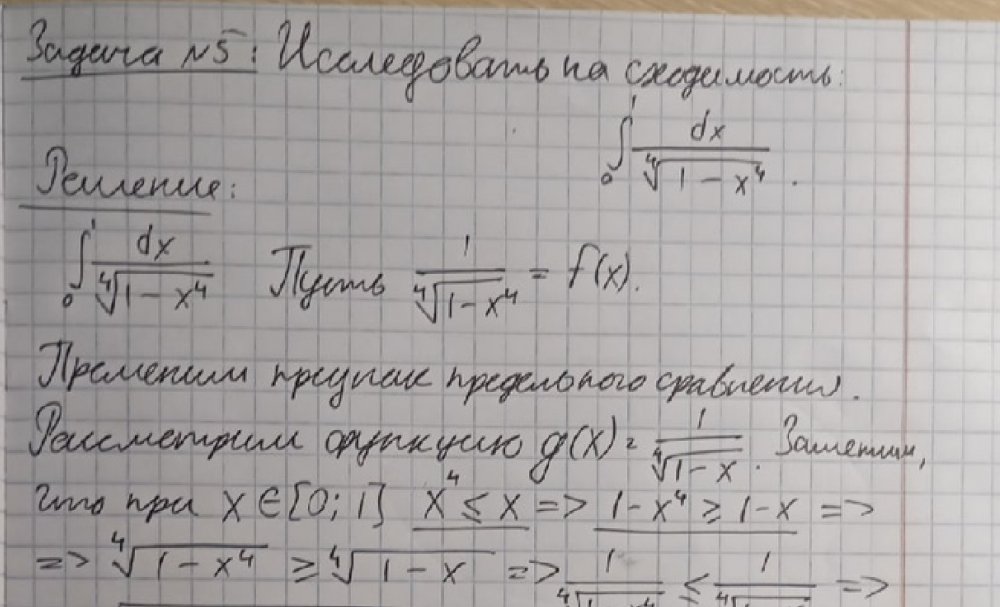 Задача №5: Исследовать на сходимость:
∫₀¹ dx / ⁴√(1 - x⁴) .
Решение:
∫₀¹ dx / ⁴√(1 - x⁴) Пусть 1 / ⁴√(1 - x⁴) = f(x).
Применим признак предельного сравнения.
Рассмотрим функцию g(x) = 1 / ⁴√(1 - x). Заметим,
что при x ∈ [0; 1] x⁴ ≤ x => 1 - x⁴ ≥ 1 - x =>
=> ⁴√(1 - x⁴) ≥ ⁴√(1 - x) => 1 / ⁴√(1 - x⁴) ≤ 1 / ⁴√(1 - x) =>